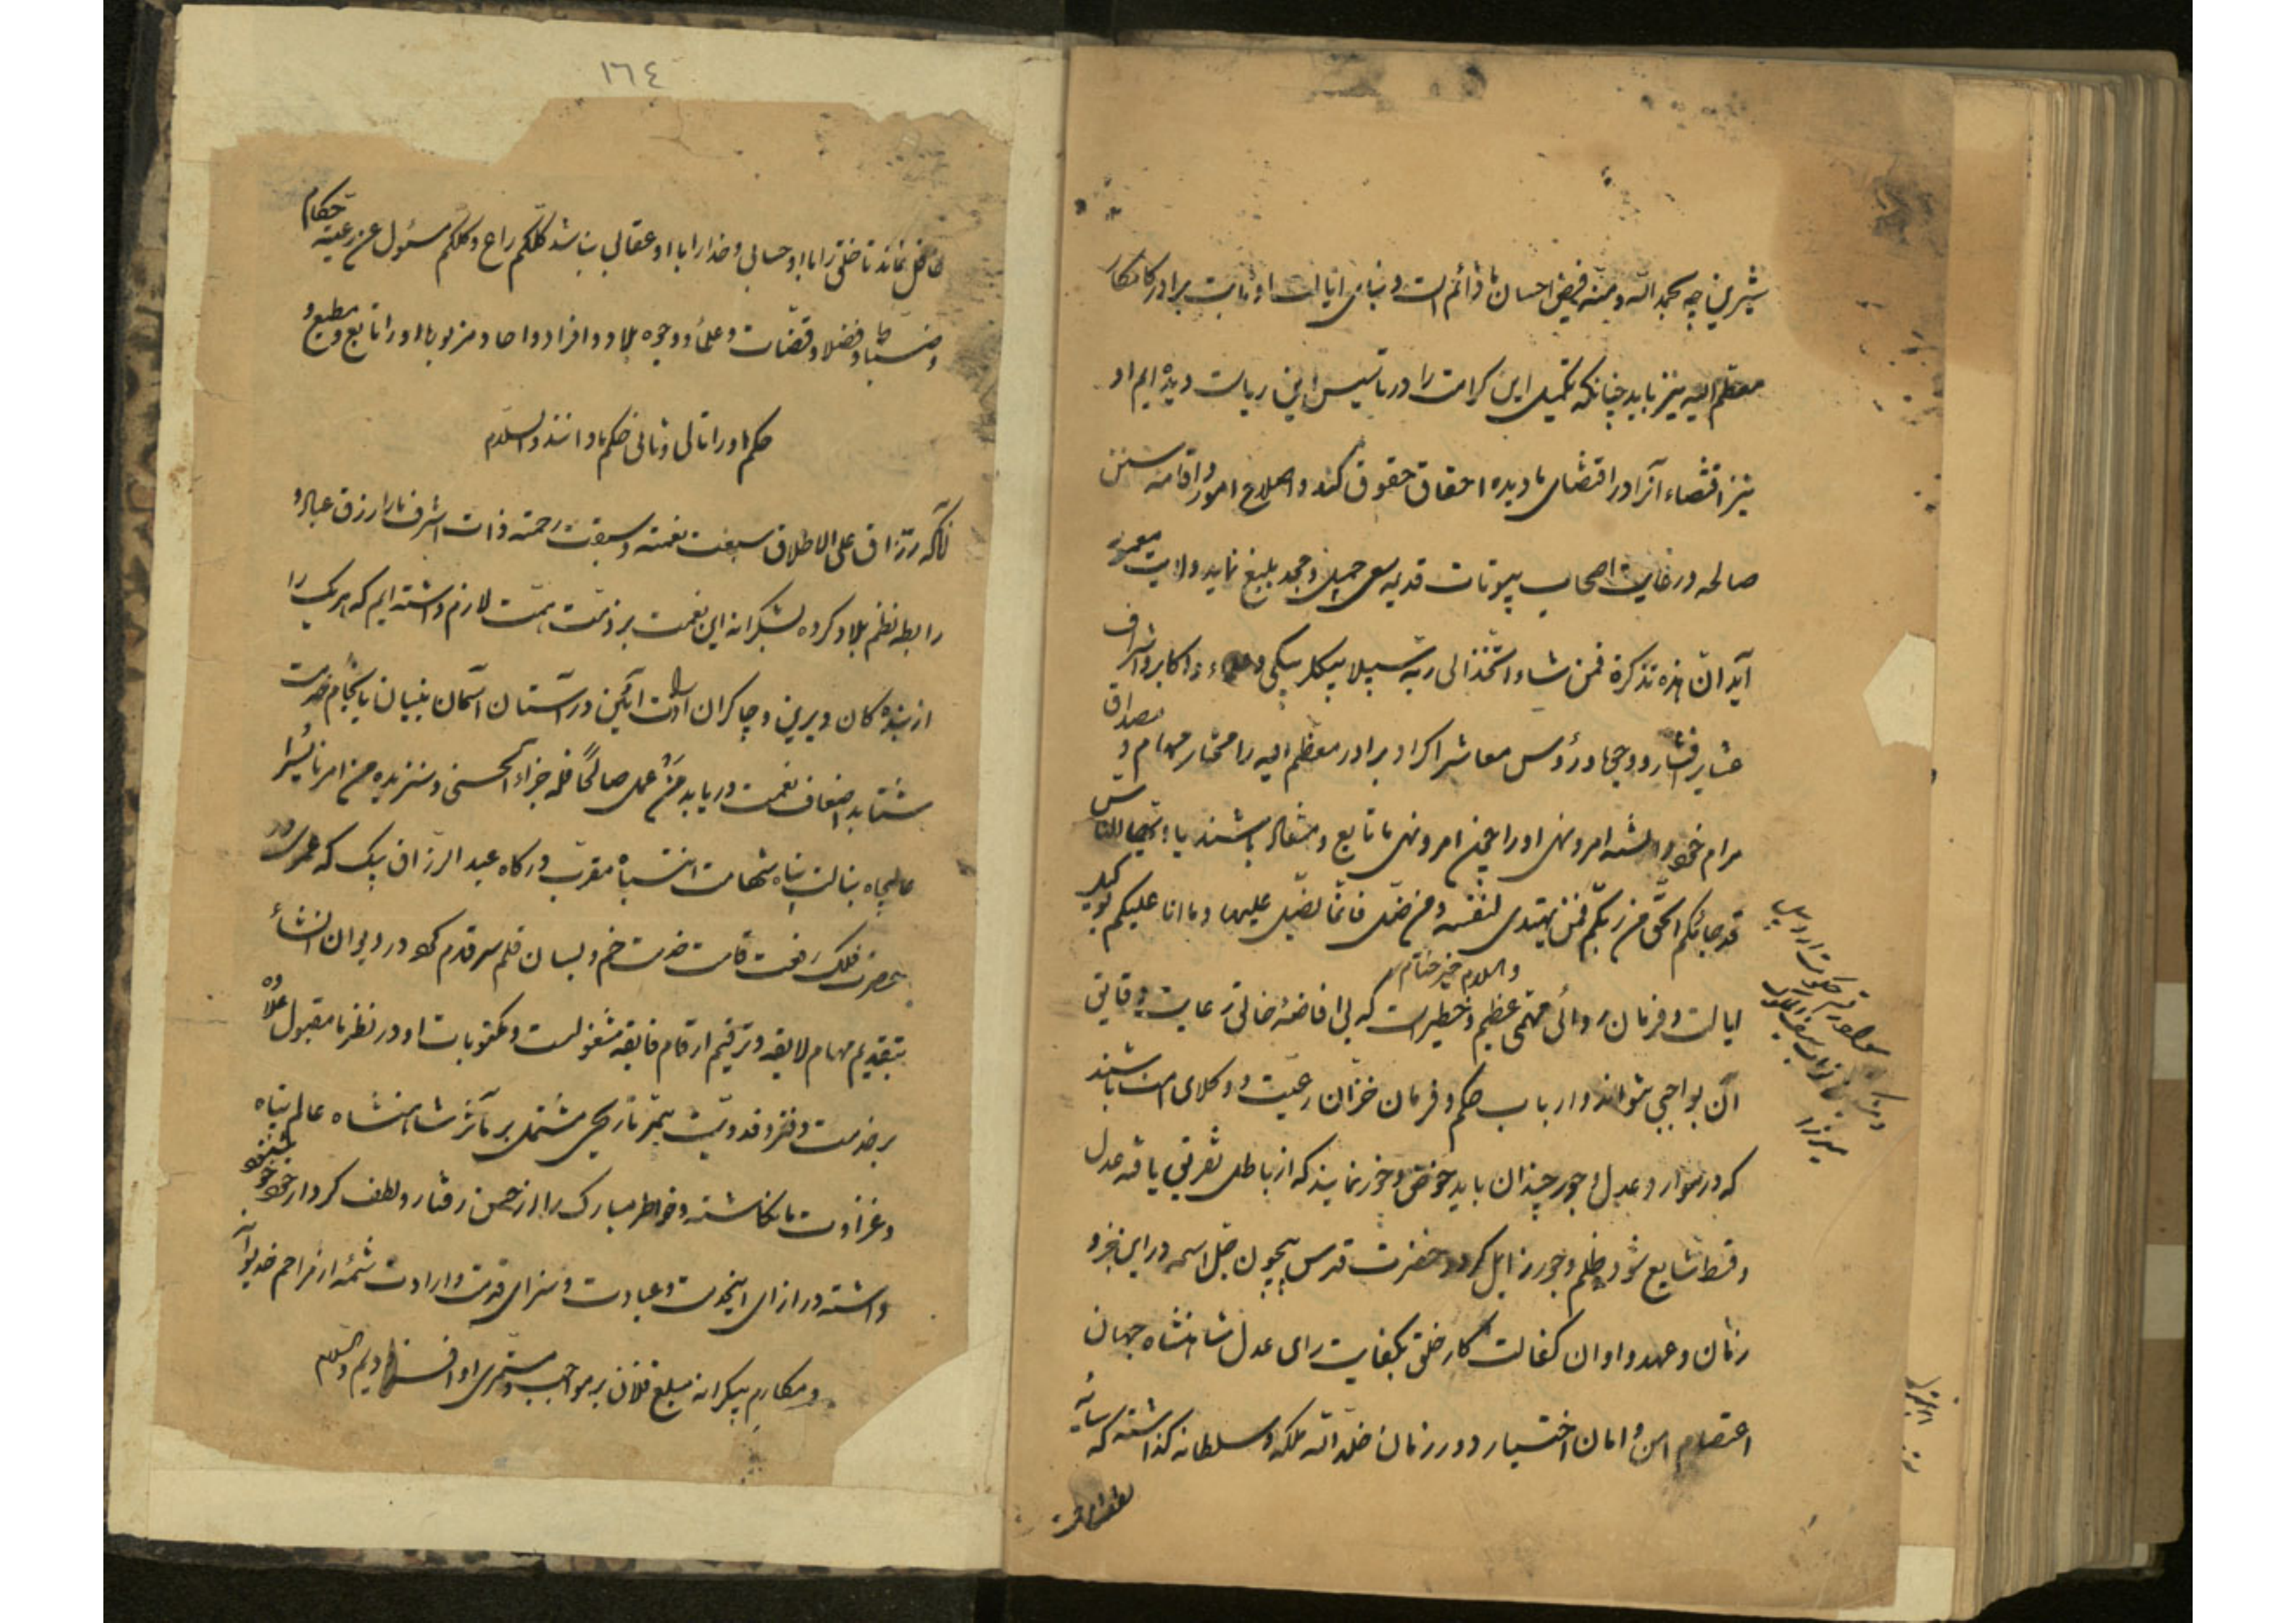 شیرین چه بحمد الله و منه فیض احسان ما دائم است و بنای ایالت او ثابت برادر کامکار
معظم الیه نیز باید چنانکه تکمیل این کرامت را در تأسیس این ریاست دیده ایم او
نیز اقتضاء آنرا در اقتضای ما دیده احقاق حقوق کند و اصلاح امور و اقامه سنن
صالحه و رعایت اصحاب بیوتات قدیمه سعی جمیل و جهد بلیغ نماید ولایت معمور
آید ان هذه تذکرة فمن شاء اتخذ الی ربه سبیلا بیکلربیکی و علماء و اکابر و اشراف
عشایر افشار و وجها و رؤس معاشر اکراد برادر معظم الیه را مختار مهام و مصداق
مرام خود دانسته امر و نهی او را عین امر و نهی ما تابع و منقاد باشند یا ایها الناس
قد جائکم الحق من ربکم فمن یهتدی لنفسه و من ضل فانما یضل علیها و ما انا علیکم بوکیل
والسلام خیر ختام
ایالت و فرمان روائی مهمی عظیم و خطیر است که بی افاضه خالق رعایت دقایق
آن بواجبی نتواند و ارباب حکم و فرمان خزان رعیت و وکلای امت باشند
که در موارد عدل و جور چندان باید خوض و غور نمایند که از باطل تفریق یافته عدل
و قسط شایع شود و ظلم و جور زایل کردد حضرت قدس بیچون جل اسمه در این جزو
زمان و عهد و اوان کفالت کار خلق بکفایت رای عدل شاهنشاه جهان
اعتصام امن و امان اختیار دور زمان خلد الله ملکه و سلطانه گذاشته که سایه
غافل نماند تا خلق را با او حسابی و خدا را با او عقابی نباشد کلکم راع و کلکم مسئول عن رعیته حکام
و ضباط و فضلا و قضات و علما و وجوه بلاد و افراد و احاد مزبور باید او را تابع و مطیع و
حکم او را تالی و ثانی حکم ما دانند والسلام
آنکه رزاق علی الاطلاق سبغت نعمته و سبقت رحمته ذات اشرف ما را رزق عباد و
رابطه نظم بلاد کرده بشکرانه این نعمت بر ذمت همت لازم داشته ایم که هر یک را
از بندگان دیرین و چاکران ارادت آئین در آستان آسمان بنیان با انجام خدمت
شتابد اضعاف نعمت دریابد من عمل صالحا فله جزاء الحسنی و سنزیده من امرنا یسرا
عالیجاه نبالت پناه شهامت انتساب مقرب درگاه عبد الرزاق بیک که عمری در
حضرت فلک رفعت قامت خدمت خم و بسان قلم سر قدم کرده در دیوان انشاء
بتقدیم مهام لایقه و ترقیم ارقام فایقه مشغولست و مکتوبات او در نظر ما مقبول علاوه
بر خدمت دفتر و فدویت بهتر تاریخی مشتمل بر مآثر شاهنشاه عالم پناه
و غزوات ما نگاشته و خاطر مبارک را از حسن رفتار و لطف کردار خود خوشنود
داشته در ازای اینخدمت و عبادت و سزای قدمت و ارادت شمه از مراحم خدیوانه
و مکارم بیکرانه مبلغ فلان بر مواجب مستمری او افزودیم والسلام
١٦٤